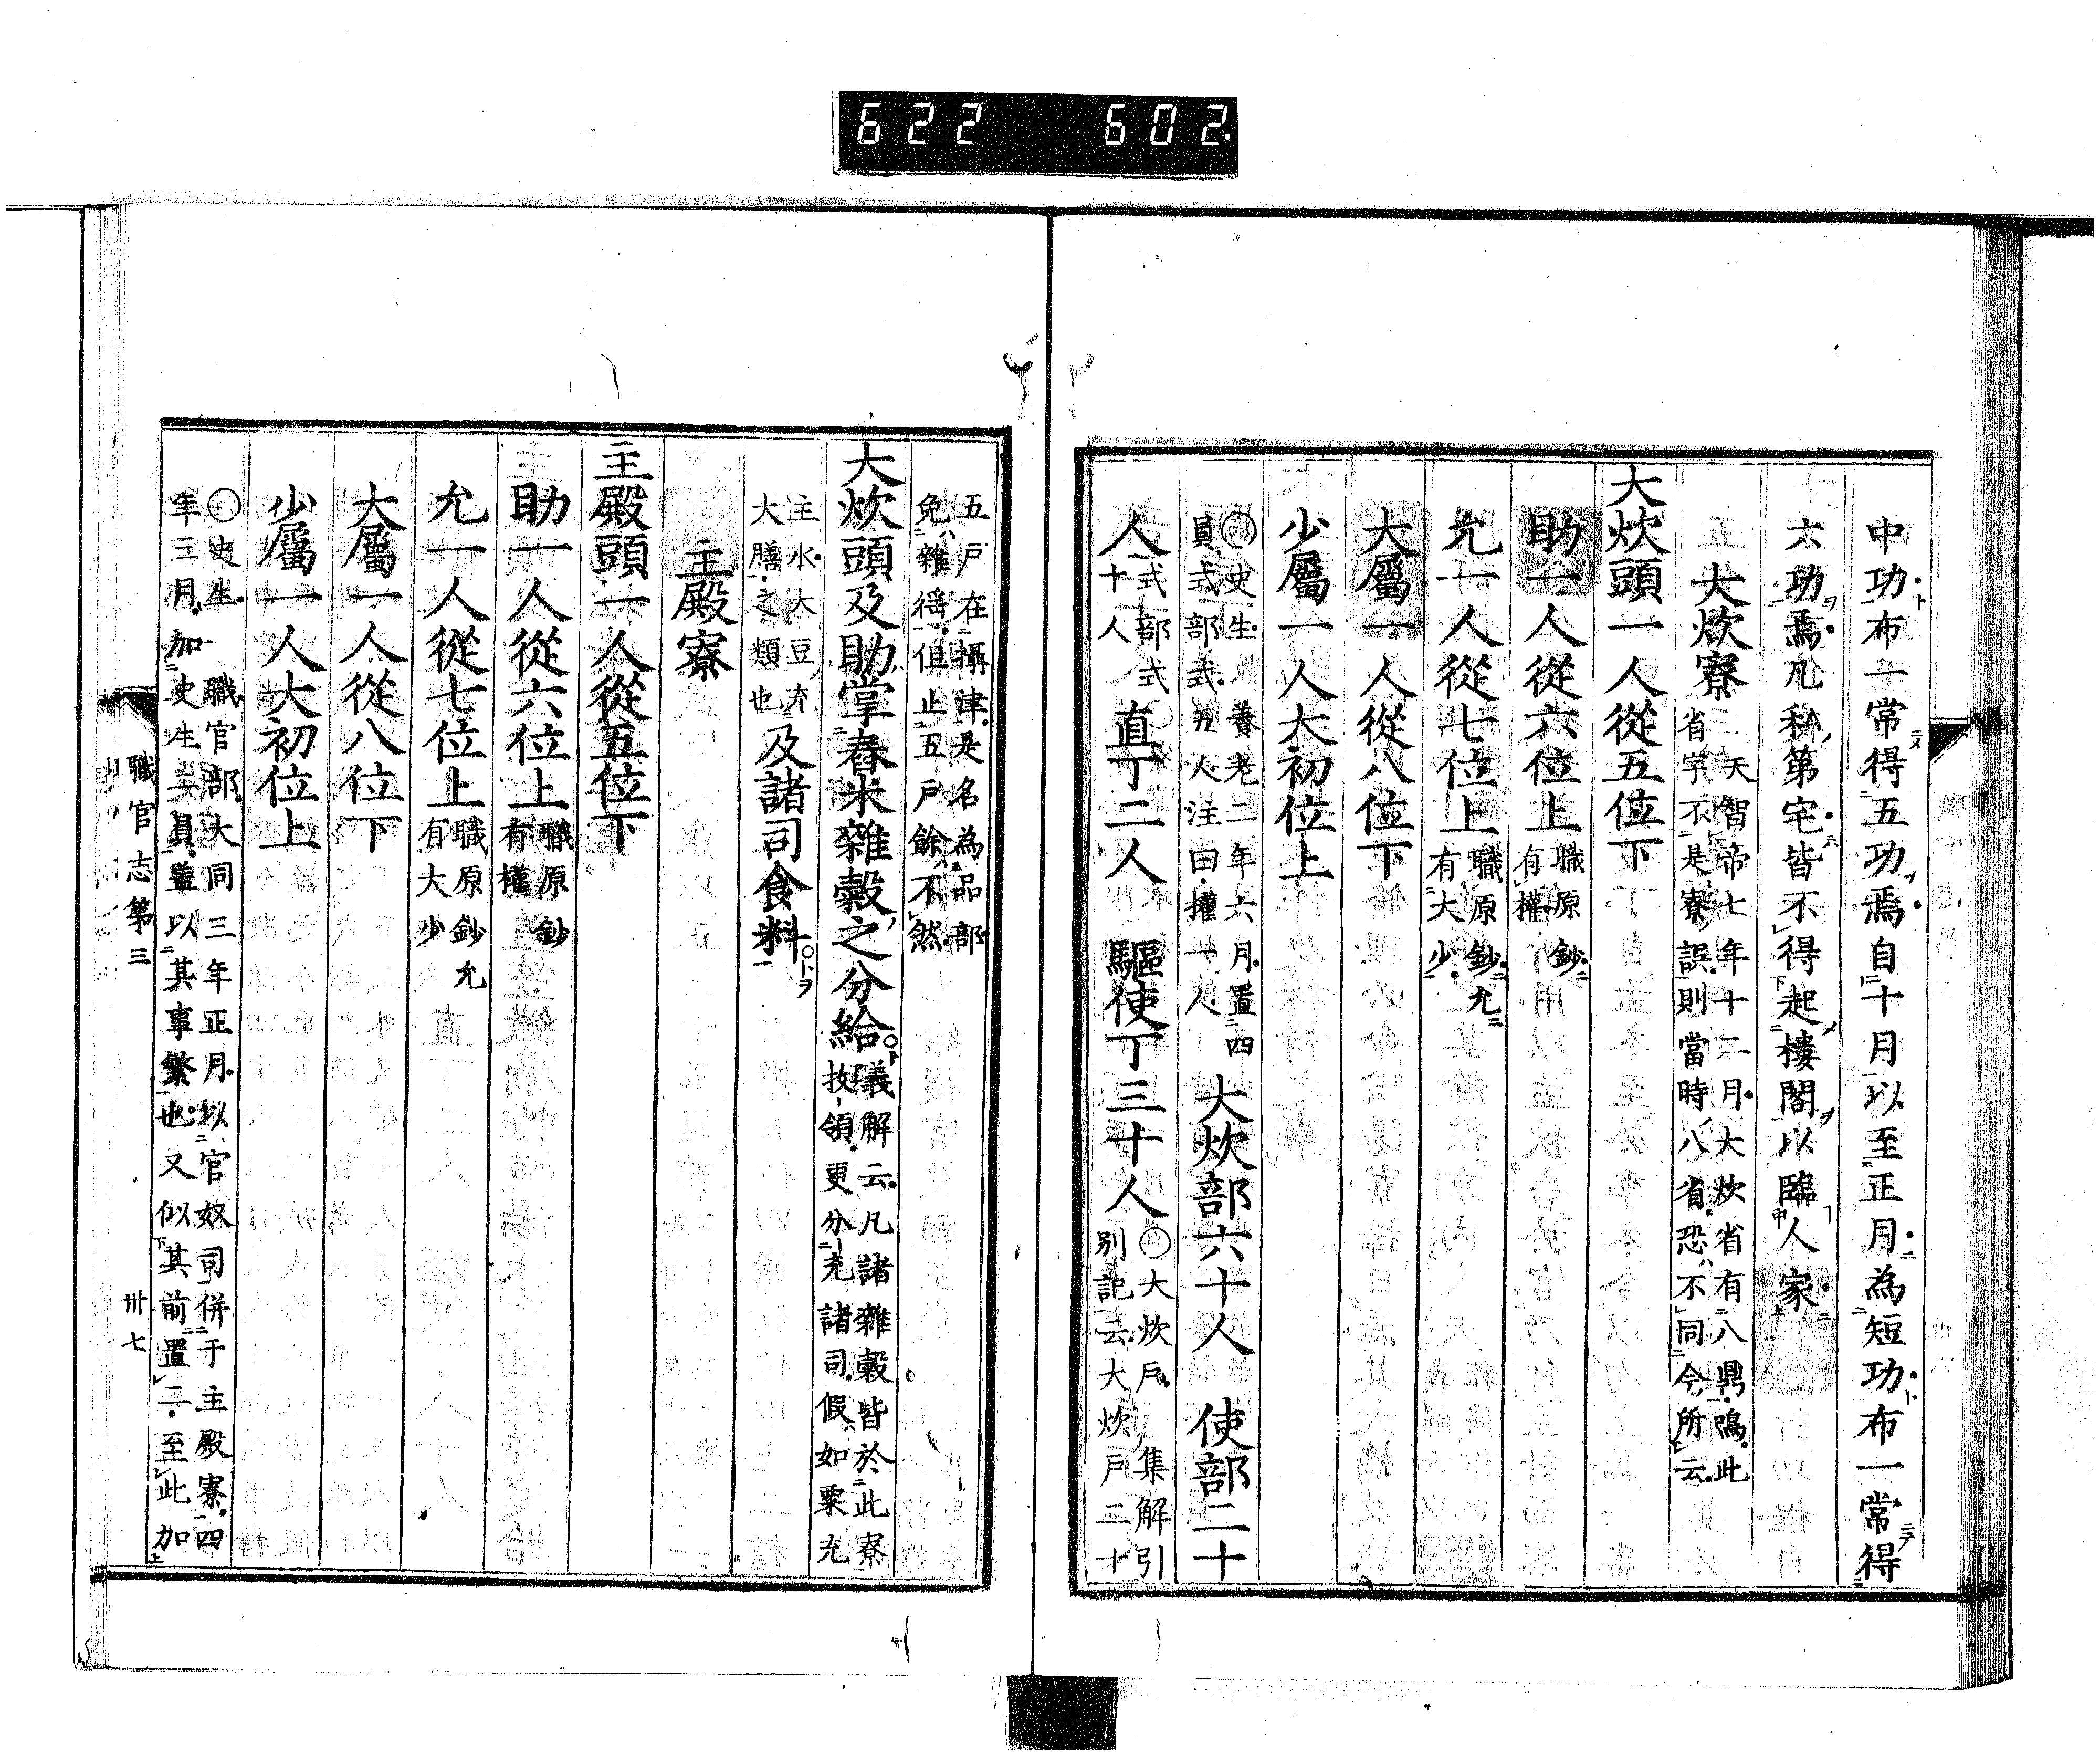 622 602
中功布一常得五功焉自十月以至正月為短功布一常得
六功焉凡私第宅皆不得起樓閣以臨人家
大炊寮
天智帝七年十二月大炊省有八鼎鳴此
省字不是寮誤則當時八省恐不同令所云
大炊頭一人從五位下
助一人從六位上
職原鈔
有權
允一人從七位上
職原鈔允
有大少
大屬一人從八位下
少屬一人大初位上
○史生 養老二年六月置四
員式部式五人注曰權一人
大炊部六十人 使部二十
人
式部式
十人
直丁二人 驅使丁三十人
○大炊戶 集解引
別記云大炊戶二十
五戶在攝津是名為品部
免雜徭但止五戶餘不然
大炊頭及助掌舂米雜穀之分給
義解云凡諸雜穀皆於此寮
收領更分充諸司假如粟充
主水大豆充
大膳之類也
及諸司食料
主殿寮
主殿頭一人從五位下
助一人從六位上
職原鈔
有權
允一人從七位上
職原鈔允
有大少
大屬一人從八位下
少屬一人大初位上
○史生 職官部大同三年正月以官奴司併于主殿寮四
年三月加史生二員蓋以其事繁也又似其前置二至此加
職官志第三 卅七